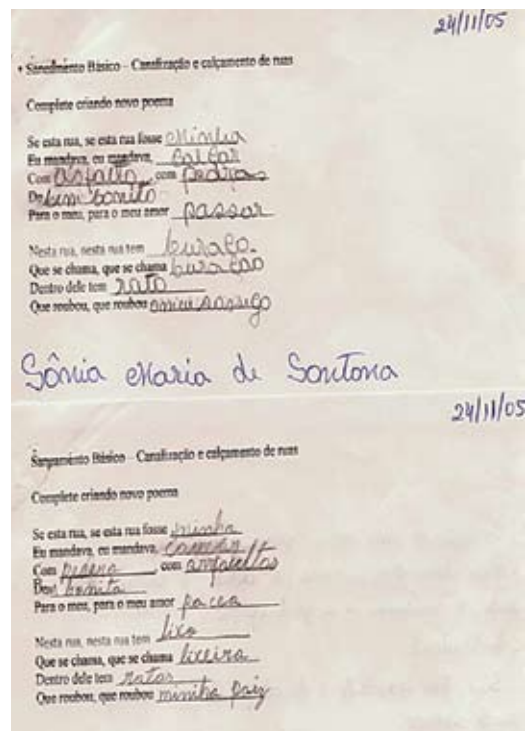 24/11/05
• Saneamento Básico – Canalização e calçamento de ruas
Complete criando novo poema
Se esta rua, se esta rua fosse Minha
Eu mandava, eu mandava, calçar
Com Asfalto com pedras
De bem bonito
Para o meu, para o meu amor passar
Nesta rua, nesta rua tem buraco.
Que se chama, que se chama buracão
Dentro dele tem rato
Que roubou, que roubou o meu sossego
Sônia Maria de Santana
24/11/05
Saneamento Básico – Canalização e calçamento de ruas
Complete criando novo poema
Se esta rua, se esta rua fosse minha
Eu mandava, eu mandava,
Com com
bonita
Para o meu, para o meu amor pacea
Nesta rua, nesta rua tem lixo
Que se chama, que se chama lixeira
Dentro dele tem ratos
Que roubou, que roubou minha paiz